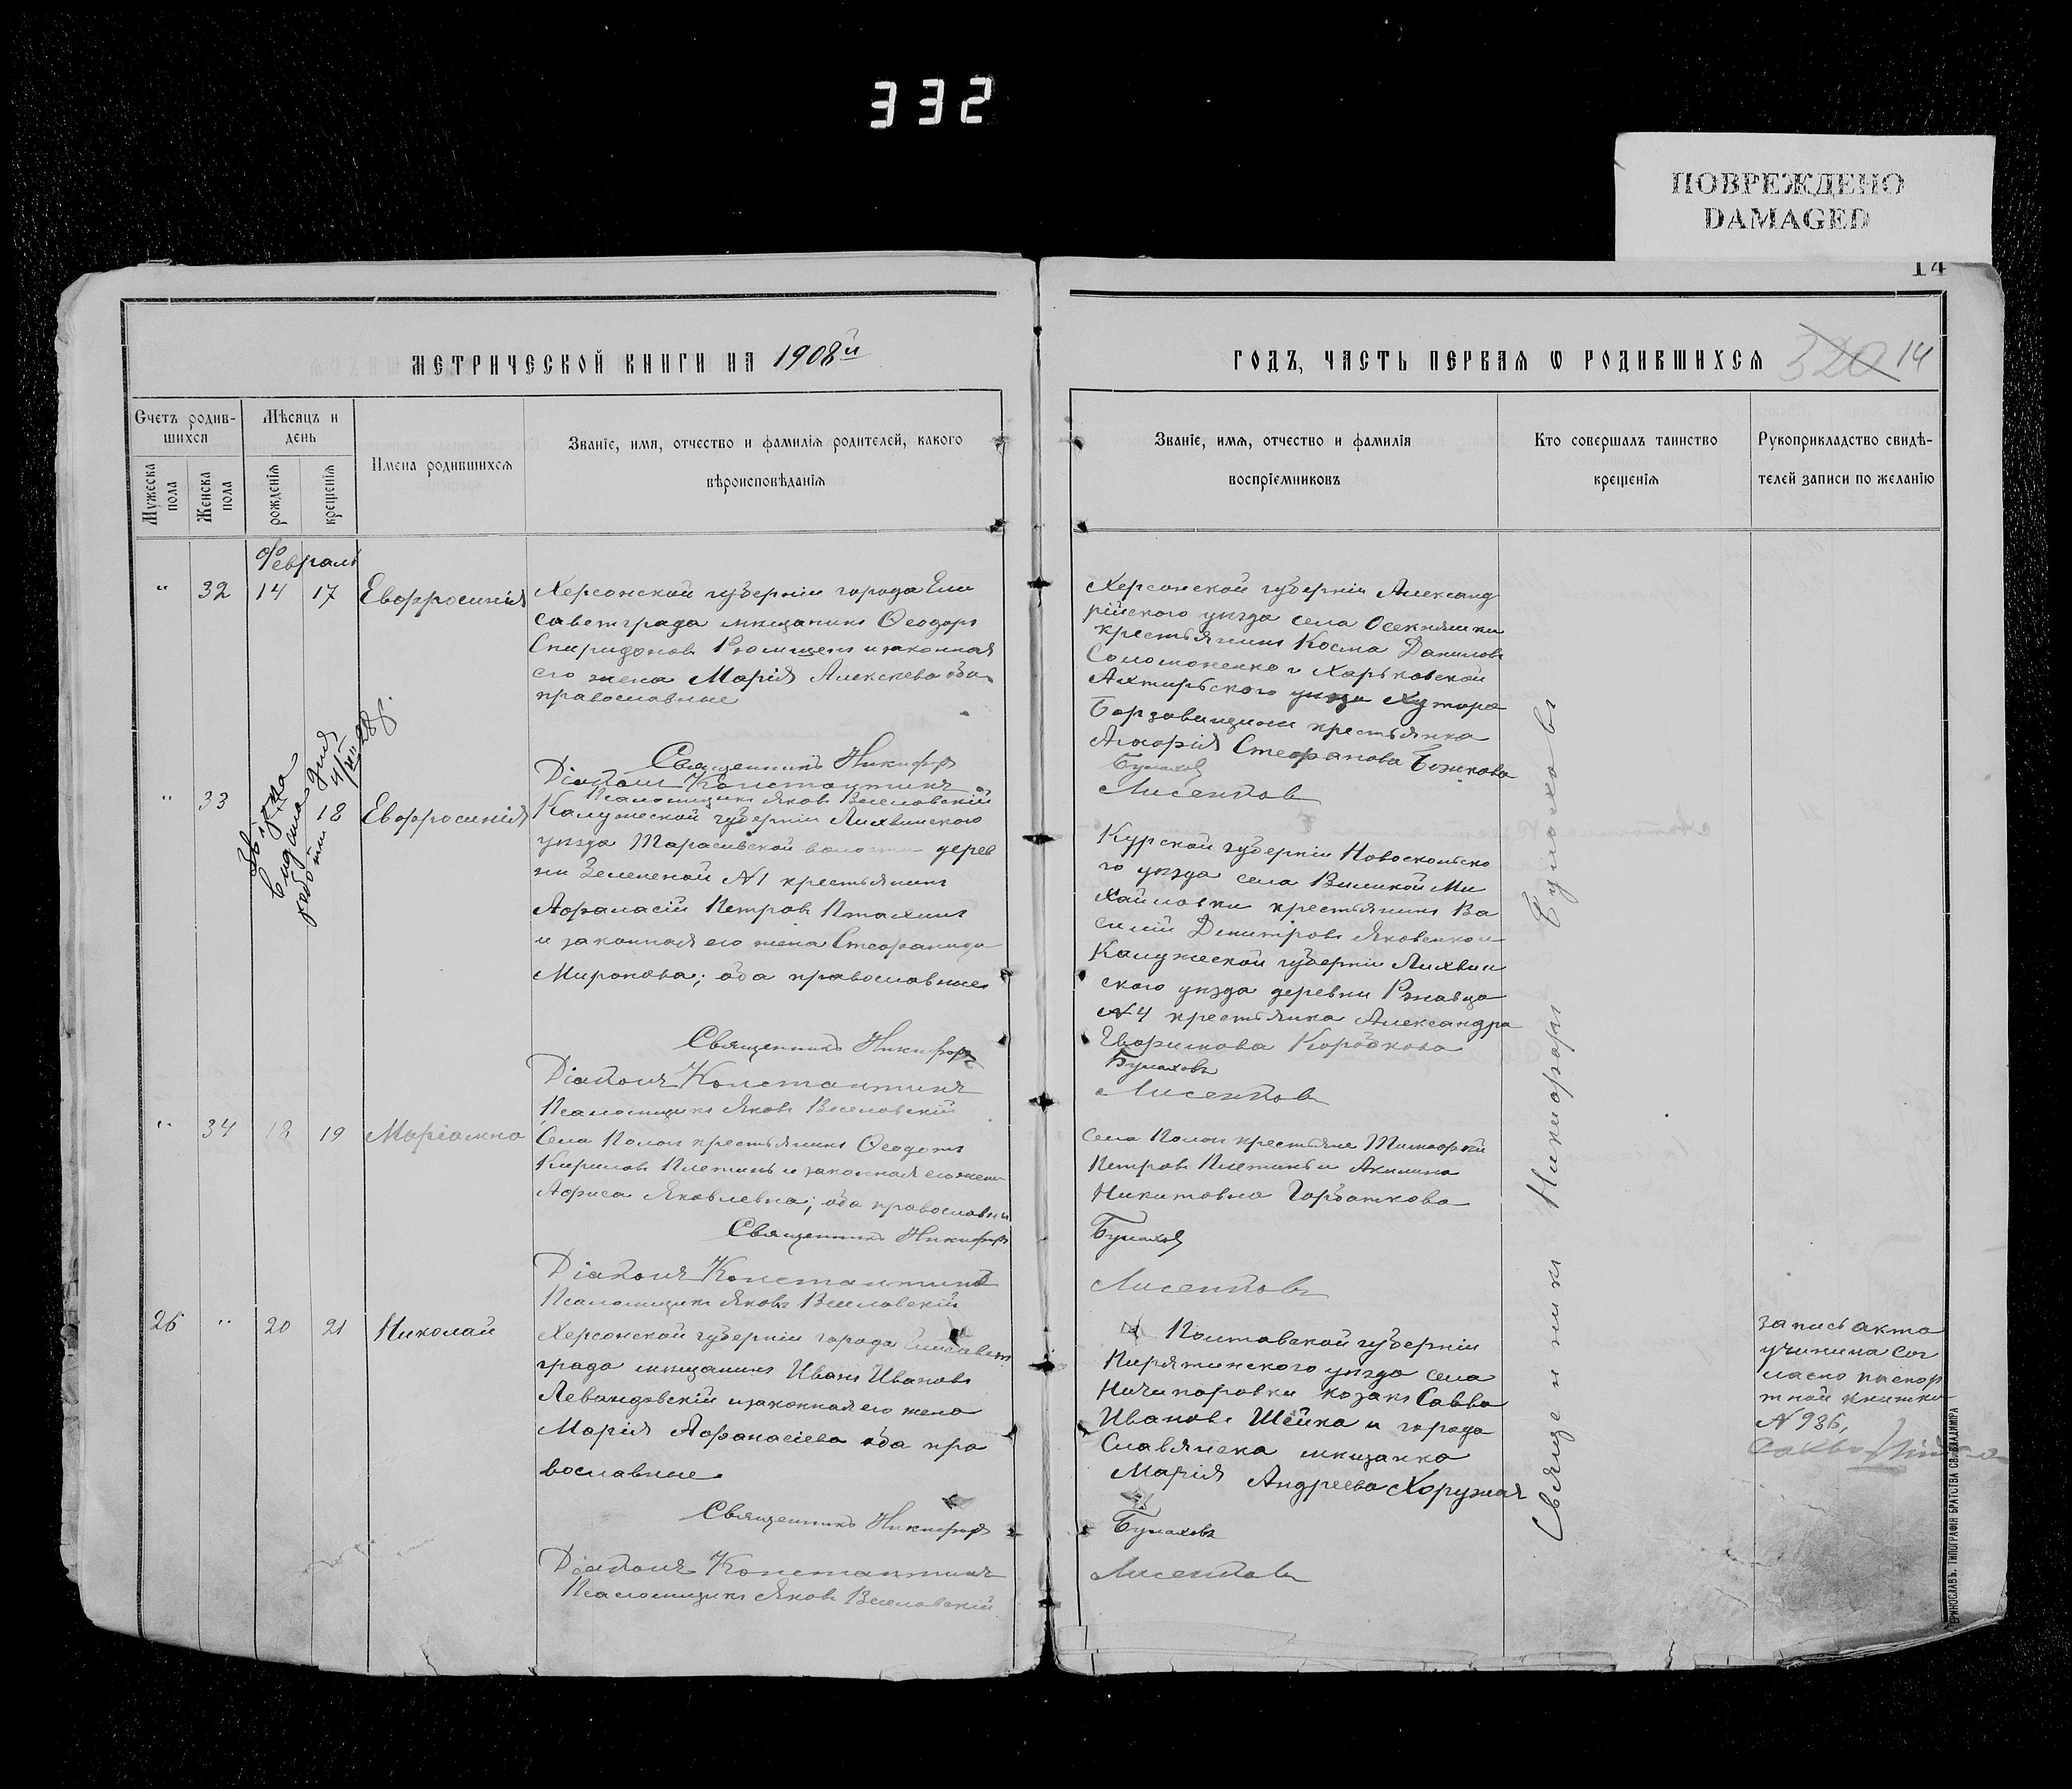 332
ПОВРЕЖДЕНО
DAMAGED
14
МЕТРИЧЕСКОЙ КНИГИ НА 1908й
ГОДЪ, ЧАСТЬ ПЕРВАЯ Ѡ РОДИВШИХСЯ
320 14
Счетъ родив-
шихся
Мужеска
пола
Женска
пола
Мѣсяцъ и
день
рожденія
крещенія
Имена родившихся
Званіе, имя, отчество и фамилія родителей, какого
вѣроисповѣданія
Званіе, имя, отчество и фамилія
воспріемниковъ
Кто совершалъ таинство
крещенія
Рукоприкладство свидѣ-
телей записи по желанію
Февраль
" 32 14 17 Евфросинія
Херсонской губерніи города Ели
саветграда мѣщанинъ Ѳеодоръ
Спиридоновъ и законная
его жена Марія Алексѣева оба
православные
Священникъ Никифоръ
Діаконъ Константинъ
Псаломщикъ Яковъ Веселовскій
Херсонской губерніи Александ
рійского уѣзда села
крестьянинъ Косма Даниловъ
и Харьковской
Ахтырьского уѣзда Хутора
крестьянка
Стефанова Божкова
Булаховъ
Лисенковъ
" 33 18 Евфросинія
выдана
4/III 28 г.
Калужеской губерніи Лихвинского
уѣзда волости дерев
ни Зеленной №1 крестьянинъ
Афанасій Петровъ Пталинъ
и законная его жена Стефанида
Миронова; оба православные
Священникъ Никифоръ
Діаконъ Константинъ
Псаломщикъ Яковъ Веселовскій
Курской губерніи Новоскольско
го уѣзда села Великой Ми
хайловки крестьянинъ Ва
силій Димитровъ Яковенко и
Калужеской губерніи Лихвин
ского уѣзда деревни Ржавца
№4 крестьянка Александра
Короткова
Булаховъ
Лисенковъ
" 34 18 19 Маріамна
Села крестьянинъ Ѳеодотъ
Кириловъ Плетинь и законная его жена
Яковлевна; оба православны
Священникъ Никифоръ
Діаконъ Константинъ
Псаломщикъ Яковъ Веселовскій
Села крестьяне Тимофей
Петровъ Плетинь и Акилина
Никитовна Горбаткова
Булаховъ
Лисенковъ
26 " 20 21 Николай
Херсонской губерніи города Елисавет
града мѣщанинъ Иванъ Ивановъ
Левандовскій и законная его жена
Марія Афанасіева оба пра
вославные
Священникъ Никифоръ
Діаконъ Константинъ
Псаломщикъ Яковъ Веселовскій
Полтавской губерніи
Пирятинского уѣзда села
Ничипоровки козакъ Савва
Ивановъ Шейка и города
Славянска мѣщанка
Марія Андреева Хоружая
Булаховъ
Лисенковъ
Священникъ Никифоръ Булаховъ
запись акта
учинена сог
ласно паспор
тной книжки
№ 936,
ТИПОГРАФІЯ БРАТСТВА СВ. ВЛАДИМІРА